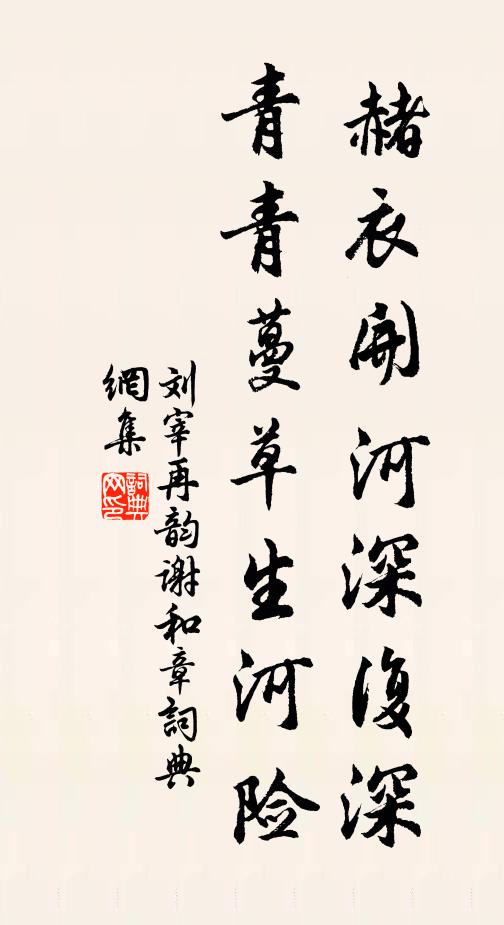 赭衣開河深復深
青青蔓草生河险
刘宰再韵谢和章詞典
網集
詞典
网印